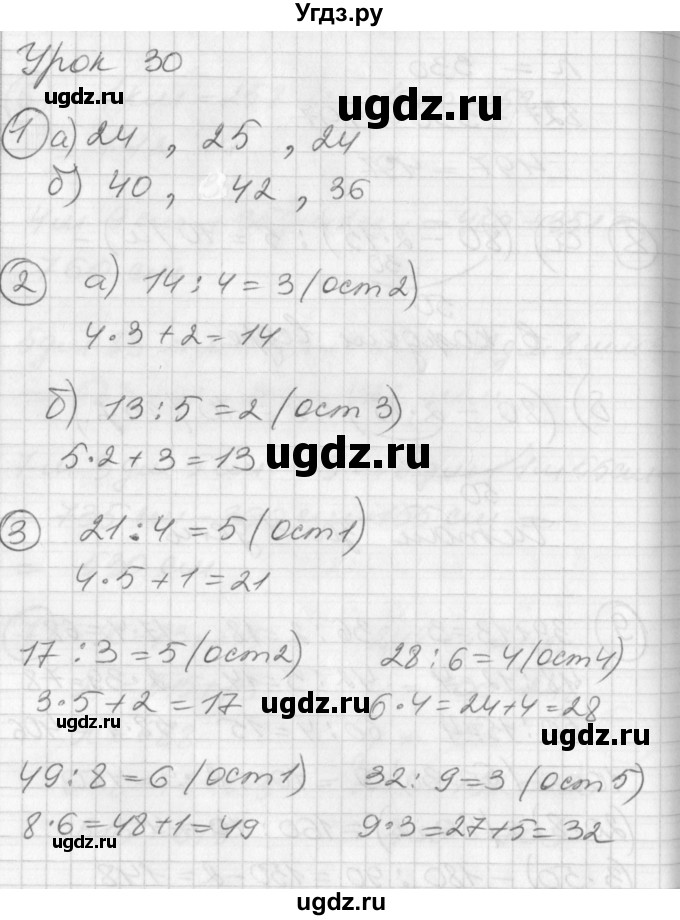 Угдз.ру
Урок 30
ugdz.ru
ugdz.ru
1 а) 24 , 25 , 24
б) 40 , 42 , 36
2 а) 14 : 4 = 3 (ост 2)
4·3 + 2 = 14
б) 13 : 5 = 2 (ост 3)
5·2 + 3 = 13
ugdz.ru
3 21 : 4 = 5 (ост 1)
4·5 + 1 = 21
17 : 3 = 5 (ост 2) 28 : 6 = 4 (ост 4)
3·5 + 2 = 17 ugdz.ru 6·4 = 24 + 4 = 28
ugdz.ru
ugdz.ru
49 : 8 = 6 (ост 1) 32 : 9 = 3 (ост 5)
8·6 = 48 + 1 = 49 9·3 = 27 + 5 = 32
ugdz.ru
ugdz.ru